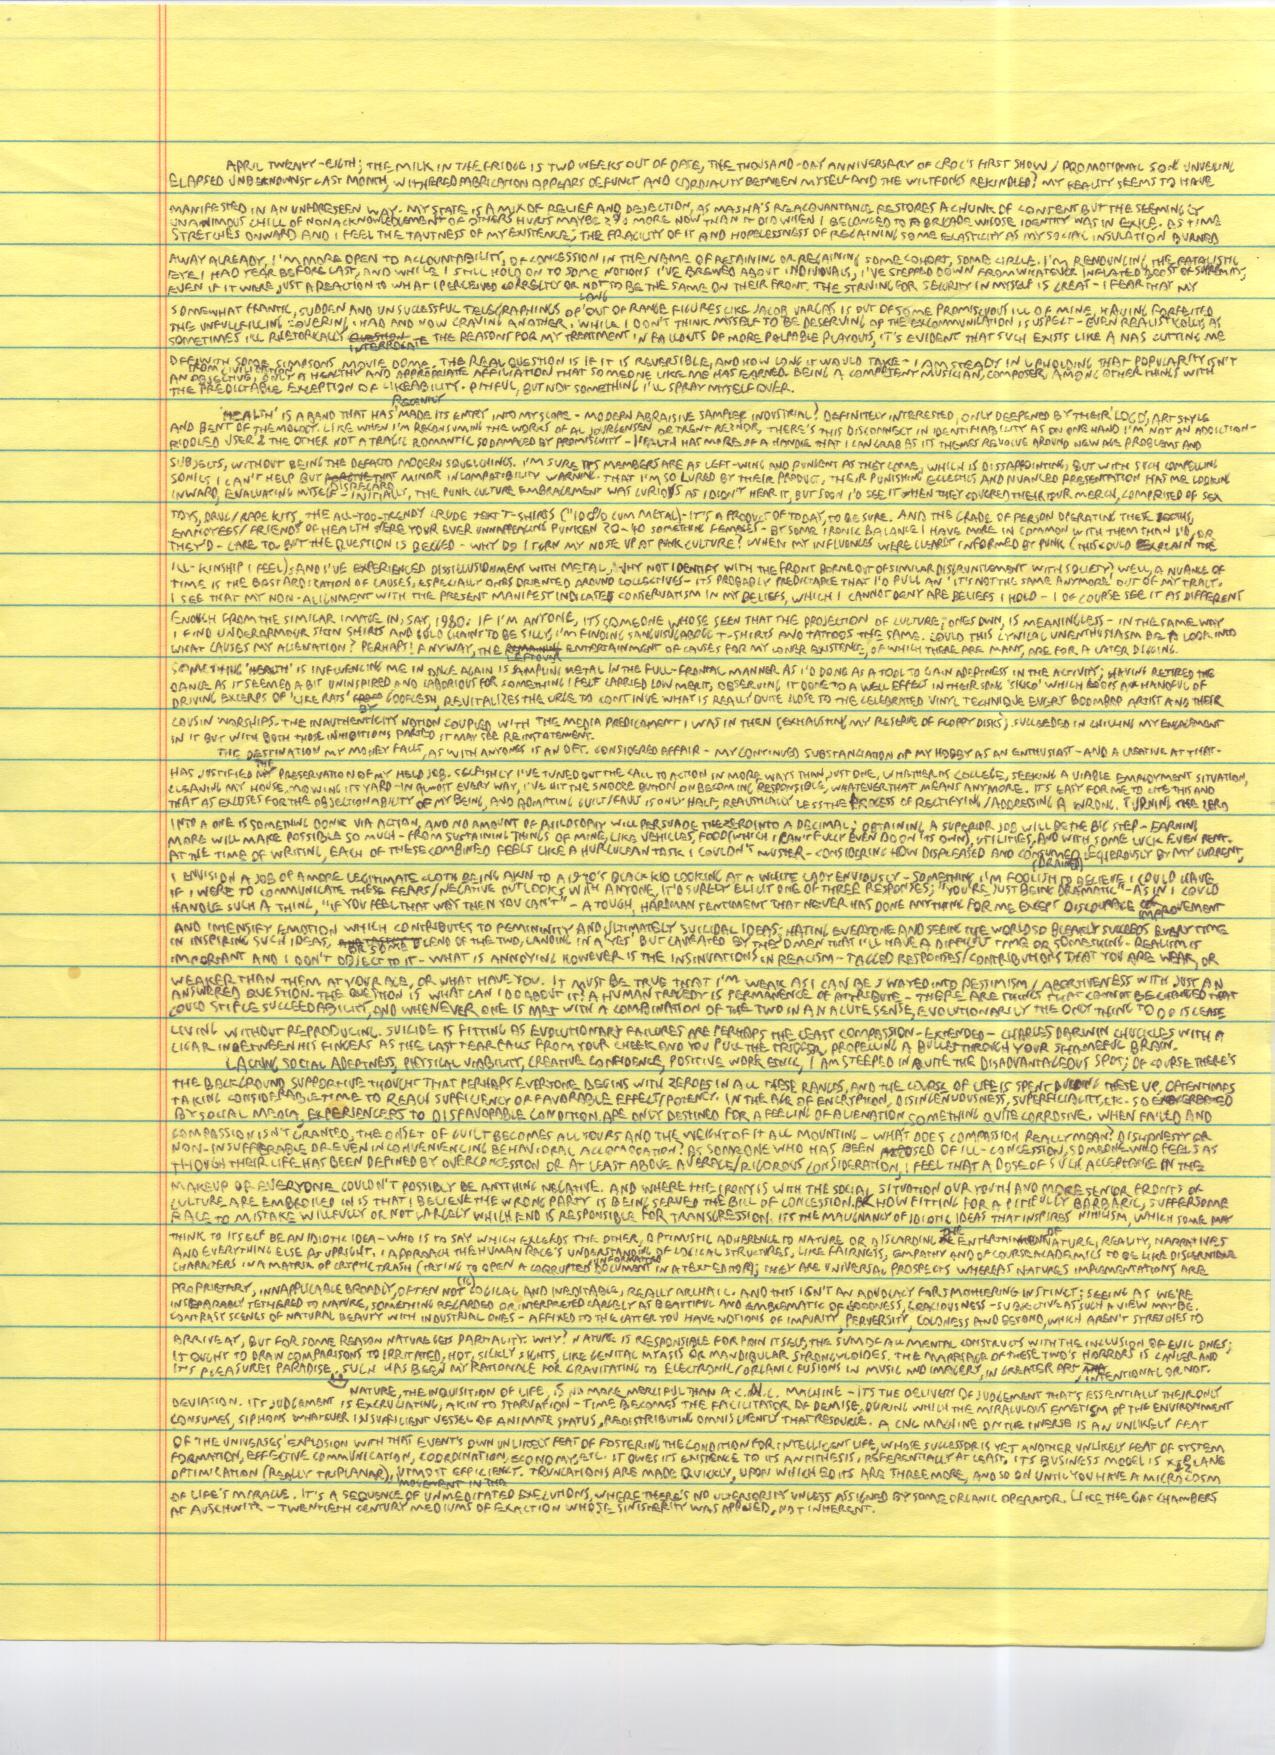 APRIL TWENTY-EIGTH; THE MILK IN THE FRIDGE IS TWO WEEKS OUT OF DATE, THE THOUSAND-DAY ANNIVERSARY OF CROC'S FIRST SHOW / PROMOTIONAL UNVEILING
ELAPSED UNBEKNOWNST LAST MONTH, WITHERED FABRICATION APPEARS DEFUNCT AND CORDIALITY BETWEEN MYSELF AND THE WILTFONGS REKINDLED? MY REALITY SEEMS TO HAVE
MANIFESTED IN AN UNFORESEEN WAY. MY STATE IS A MIX OF RELIEF AND DEJECTION, AS MASHA'S REACQUAINTANCE RESTORES A CHUNK OF CONTENT BUT THE SEEMINGLY
UNANIMOUS CHILL OF NONACKNOWLEDGEMENT OF OTHERS HURTS MAYBE 2% MORE NOW THAN IT DID WHEN I BELONGED TO A BRIGADE WHOSE IDENTITY WAS IN EXILE. AS TIME
STRETCHES ONWARD AND I FEEL THE TAUTNESS OF MY EXISTENCE; THE FRAGILITY OF IT AND HOPELESSNESS OF REGAINING SOME ELASTICITY AS MY SOCIAL INSULATION BURNED
AWAY ALREADY, I'M MORE OPEN TO ACCOUNTABILITY, OF CONCESSION IN THE NAME OF RETAINING OR REGAINING SOME COHORT, SOME CIRCLE. I'M RENOUNCING THE FATALISTIC
EYE I HAD YEAR BEFORE LAST, AND WHILE I STILL HOLD ON TO SOME NOTIONS I'VE BREWED ABOUT INDIVIDUALS, I'VE STEPPED DOWN FROM WHATEVER INFLATED
EVEN IF IT WERE JUST A REACTION TO WHAT I PERCEIVED CORRECTLY OR NOT TO BE THE SAME ON THEIR FRONT. THE STRIVING FOR SECURITY IN MYSELF IS GREAT - I FEAR THAT MY
SOMEWHAT FRANTIC, SUDDEN AND UNSUCCESSFUL TELEGRAPHINGS OF OUT OF LONG RANGE FIGURES LIKE JACOB VARGAS IS OUT OF SOME PROMISCUOUS ILL OF MINE, HAVING FORFEITED
THE UNFULFILLING COVERING I HAD AND NOW CRAVING ANOTHER. WHILE I DON'T THINK MYSELF TO BE DESERVING OF THE EXCOMMUNICATION IS SUSPECT - EVEN REALISTICALLY, AS
SOMETIMES I'LL RHETORICALLY QUESTION INTERROGATE THE REASONS FOR MY TREATMENT IN FALLOUTS OF MORE PALPABLE PLAYOUTS, IT'S EVIDENT THAT SUCH EXISTS LIKE A NAS CUTTING ME
OFF FROM CIVILIZATION WITH SOME SIMPSONS MOVIE DOME. THE REAL QUESTION IS IF IT IS REVERSIBLE, AND HOW LONG IT WOULD TAKE - I AM STEADY IN UPHOLDING THAT POPULARITY ISN'T
AN OBJECTIVE, ONLY A HEALTHY AND APPROPRIATE AFFILIATION THAT SOMEONE LIKE ME HAS EARNED BEING A COMPETENT MUSICIAN, COMPOSER, AMONG OTHER THINGS WITH
THE PREDICTABLE EXCEPTION OF LIKEABILITY. PITIFUL, BUT NOT SOMETHING I'LL SPRAY MYSELF OVER.
'HEALTH' IS A BAND THAT HAS RECENTLY MADE ITS ENTRY INTO MY SCOPE - MODERN ABRAISIVE SAMPLER INDUSTRIAL? DEFINITELY INTERESTED, ONLY DEEPENED BY THEIR LOGO, ART STYLE
AND BENT OF THEMOLOGY. LIKE WHEN I'M RECONSUMING THE WORKS OF AL JOURGENSEN OR TRENT REZNOR, THERE'S THIS DISCONNECT IN IDENTIFIABILITY AS ON ONE HAND I'M NOT AN ADDICTION-
RIDDLED USER & THE OTHER NOT A TRAGIC ROMANTIC SO DAMAGED BY PROMISCUITY - HEALTH HAS MORE OF A HANDLE THAT I CAN GRAB AS ITS THEMES REVOLVE AROUND NEW AGE PROBLEMS AND
SUBJECTS, WITHOUT BEING THE DEFACTO MODERN SQUELCHINGS. I'M SURE ITS MEMBERS ARE AS LEFT-WING AND PUNGENT AS THEY COME, WHICH IS DISSAPPOINTING, BUT WITH SUCH COMPELLING
SONICS I CAN'T HELP BUT DISREGARD THAT MINOR INCOMPATIBILITY WARNING. THAT I'M SO LURED BY THEIR PRODUCT, THEIR PUNISHING ECLECTICS AND NUANCED PRESENTATION HAS ME LOOKING
INWARD, EVALUATING MYSELF - INITIALLY, THE PUNK CULTURE EMBRACEMENT WAS CURIOUS AS I DIDN'T HEAR IT, BUT SOON I'D SEE IT WHEN THEY COVERED THEIR TOUR MERCH, COMPRISED OF SEX
TOYS, DRUG/RAPE KITS, THE ALL-TOO-TRENDY CRUDE TEXT T-SHIRTS ("100% CUM METAL) - IT'S A PRODUCT OF TODAY, TO BE SURE. AND THE GRADE OF PERSON OPERATING THESE BOOTHS,
EMPLOYEES/FRIENDS OF HEALTH WERE YOUR EVER UNAPPEALING PUNKEN 20-40 SOMETHING FEMALES - BY SOME IRONIC BALANCE I HAVE MORE IN COMMON WITH THEM THAN I'D, OR
THEY'D - CARE TO, BUT THE QUESTION IS BEGGED - WHY DO I TURN MY NOSE UP AT PUNK CULTURE? WHEN MY INFLUENCES WERE CLEARLY INFORMED BY PUNK (THIS COULD EXPLAIN THE
ILL-KINSHIP I FEEL); AND I'VE EXPERIENCED DISSILLUSIONMENT WITH METAL, WHY NOT IDENTIFY WITH THE FRONT BORNE OUT OF SIMILAR DISGRUNTLEMENT WITH SOCIETY? WELL, A NUANCE OF
TIME IS THE BASTARDIZATION OF CAUSES, ESPECIALLY ONES ORIENTED AROUND COLLECTIVES - ITS PROBABLY PREDICTABLE THAT I'D PULL AN 'IT'S NOT THE SAME ANYMORE' OUT OF MY TRACT.
I SEE THAT MY NON-ALIGNMENT WITH THE PRESENT MANIFEST INDICATES CONSERVATISM IN MY BELIEFS, WHICH I CANNOT DENY ARE BELIEFS I HOLD - I OF COURSE SEE IT AS DIFFERENT
ENOUGH FROM THE SIMILAR IMAGE IN, SAY, 1980. IF I'M ANYONE, ITS SOMEONE WHOSE SEEN THAT THE PROJECTION OF CULTURE; ONES OWN, IS MEANINGLESS - IN THE SAME WAY
I FIND UNDERARMOUR SKIN SHIRTS AND GOLD CHAIN TO BE SILLY, I'M FINDING T-SHIRTS AND TATTOOS THE SAME. COULD THIS CYNICAL UNENTHUSIASM BE A LOOK INTO
WHAT CAUSES MY ALIENATION? PERHAPS! ANYWAY, THE REMAINING LEFTOVER ENTERTAINMENT OF CAUSES FOR MY LONER EXISTENCE, OF WHICH THERE ARE MANY, ARE FOR A LATER DIGGING.
SOMETHING 'HEALTH' IS INFLUENCING ME IN ONCE AGAIN IS SAMPLING METAL IN THE FULL-FRONTAL MANNER AS I'D DONE AS A TOOL TO GAIN ADEPTNESS IN THE ACTIVITY; HAVING RETIRED THE
DANCE AS IT SEEMED A BIT UNINSPIRED AND LABORIOUS FOR SOMETHING I FELT CARRIED LOW MERIT, OBSERVING IT DONE TO A WELL EFFECT IN THEIR SONG 'SICKO' WHICH LOOPS A HANDFUL OF
DRIVING EXCERPS OF 'LIKE RATS' BY GODFLESH, REVITALIZES THE URGE TO CONTINUE WHAT IS REALLY QUITE CLOSE TO THE CELEBRATED VINYL TECHNIQUE EVERY BOOMBAP ARTIST AND THEIR
COUSIN WORSHIPS. THE INAUTHENTICITY NOTION COUPLED WITH THE MEDIA PREDICAMENT I WAS IN THEN (EXHAUSTING MY RESERVE OF FLOPPY DISKS), SUCCEEDED IN CHILLING MY ENGAGEMENT
IN IT BUT WITH BOTH THOSE INHIBITIONS PARTED IT MAY SEE REINSTATEMENT.
THE DESTINATION MY MONEY FALLS, AS WITH ANYONES IS AN OFT. CONSIDERED AFFAIR - MY CONTINUED SUBSTANCIATION OF MY HOBBY AS AN ENTHUSIAST - AND A CREATIVE AT THAT -
HAS JUSTIFIED THE PRESERVATION OF MY HELD JOB. SELFISHLY I'VE TUNED OUT THE CALL TO ACTION IN MORE WAYS THAN JUST ONE, WHETHER AS COLLEGE, SEEKING A VIABLE EMPLOYMENT SITUATION,
CLEANING MY HOUSE, MOWING ITS YARD - IN ALMOST EVERY WAY, I'VE HIT THE SNOOZE BUTTON ON BECOMING RESPONSIBLE, WHATEVER THAT MEANS ANYMORE. IT'S EASY FOR ME TO CITE THIS AND
THAT AS EXCUSES FOR THE OBJECTIONABILITY OF MY BEING, AND ADMITTING GUILT/FAULT IS ONLY HALF, REALISTICALLY LESS THE PROCESS OF RECTIFYING/ADDRESSING A WRONG. TURNING THE ZERO
INTO A ONE IS SOMETHING DONE VIA ACTION, AND NO AMOUNT OF PHILOSOPHY WILL PERSUADE THE ZERO INTO A DECIMAL; OBTAINING A SUPERIOR JOB WILL BE THE BIG STEP - EARNING
MORE WILL MAKE POSSIBLE SO MUCH - FROM SUSTAINING THINGS OF MINE, LIKE VEHICLES, FOOD (WHICH I CAN'T FULLY EVEN DO ON ITS OWN), UTILITIES, AND WITH SOME LUCK EVEN RENT.
AT THE TIME OF WRITING, EACH OF THESE COMBINED FEELS LIKE A HURCULEAN TASK I COULDN'T MUSTER - CONSIDERING HOW DISPLEASED AND CONSUMED (DRAINED) BY MY CURRENT,
I ENVISION A JOB OF A MORE LEGITIMATE CLOTH BEING AKIN TO A 1950'S BLACK KID LOOKING AT A WHITE LADY ENVIOUSLY - SOMETHING I'M FOOLISH TO BELIEVE I COULD HAVE.
IF I WERE TO COMMUNICATE THESE FEARS/NEGATIVE OUTLOOKS WITH ANYONE, IT'D SURELY ELICIT ONE OF THREE RESPONSES; "YOU'RE JUST BEING DRAMATIC" - AS IN I COULD
HANDLE SUCH A THING, "IF YOU FEEL THAT WAY THEN YOU CAN'T" - A TOUGH, HARDMAN SENTIMENT THAT NEVER HAS DONE ANYTHING FOR ME EXEPT DISCOURAGE OF IMPROVEMENT
AND INTENSIFY EMOTION WHICH CONTRIBUTES TO FEMININITY AND ULTIMATELY SUICIDAL IDEAS; HATING EVERYONE AND SEEING THE WORLD SO BLEAKLY SUCCEEDS EVERY TIME
IN INSPIRING SUCH IDEAS, OR SOME BLEND OF THE TWO, LANDING IN A 'YES' BUT CAVEATED BY THE OMEN THAT I'LL HAVE A DIFFICULT TIME OR SOMETHING - REALISM IS
IMPORTANT AND I DON'T OBJECT TO IT - WHAT IS ANNOYING HOWEVER IS THE INSINUATIONS IN REALISM-TAGGED RESPONSES/CONTRIBUTIONS THAT YOU ARE WEAK, OR
WEAKER THAN THEM AT YOUR AGE, OR WHAT HAVE YOU. IT MUST BE TRUE THAT I'M WEAK AS I CAN BE SWAYED INTO PESSIMISM/ABORTIVENESS WITH JUST AN
ANSWERED QUESTION. THE QUESTION IS WHAT CAN I DO ABOUT IT? A HUMAN TRAGEDY IS PERMANENCE OF ATTRIBUTE - THERE ARE THINGS THAT CANNOT BE CHANGED THAT
COULD STIFLE SUCCEEDABILITY, AND WHENEVER ONE IS MET WITH A COMBINATION OF THE TWO IN AN ACUTE SENSE, EVOLUTIONARILY THE ONLY THING TO DO IS CEASE
LIVING WITHOUT REPRODUCING. SUICIDE IS FITTING AS EVOLUTIONARY FAILURES ARE PERHAPS THE LEAST COMPASSION-EXTENDED - CHARLES DARWIN CHUCKLES WITH A
CIGAR INBETWEEN HIS FINGERS AS THE LAST TEAR FALLS FROM YOUR CHEEK AND YOU PULL THE TRIGGER, PROPELLING A BULLET THROUGH YOUR SHAMEFUL BRAIN.
LACKING SOCIAL ADEPTNESS, PHYSICAL VIABILITY, CREATIVE CONFIDENCE, POSITIVE WORK ETHIC, I AM STEEPED IN QUITE THE DISADVANTAGEOUS SPOT; OF COURSE THERE'S
THE BACKGROUND SUPPORTIVE THOUGHT THAT PERHAPS EVERYONE BEGINS WITH ZEROES IN ALL THESE RANGES, AND THE COURSE OF LIFE IS SPENT THESE UP, OFTENTIMES
TAKING CONSIDERABLE TIME TO REACH SUFFICIENCY OR FAVORABLE EFFECT/POTENCY. IN THE AGE OF ENCRYPTION, DISINGENUOUSNESS, SUPERFICIALITY, ETC. SO
BY SOCIAL MEDIA, EXPERIENCERS TO DISFAVORABLE CONDITION ARE ONLY DESTINED FOR A FEELING OF ALIENATION, SOMETHING QUITE CORROSIVE. WHEN FAILED AND
COMPASSION ISN'T GRANTED, THE ONSET OF GUILT BECOMES ALL YOURS AND THE WEIGHT OF IT ALL MOUNTING - WHAT DOES COMPASSION REALLY MEAN? DISHONESTY OR
NON-INSUFFERABLE OR EVEN INCONVENIENCING BEHAVIORAL ACCOMODATION? AS SOMEONE WHO HAS BEEN ACCUSED OF ILL-CONCESSION, SOMEONE WHO FEELS AS
THOUGH THEIR LIFE HAS BEEN DEFINED BY OVERCONCESSION OR AT LEAST ABOVE AVERAGE/RIGOROUS CONSIDERATION, I FEEL THAT A DOSE OF SUCH ACCEPTANCE IN THE
MAKEUP OF EVERYONE COULDN'T POSSIBLY BE ANYTHING NEGATIVE. AND WHERE THE IRONY IS WITH THE SOCIAL SITUATION OUR YOUTH AND MORE SENIOR FRONTS OF
CULTURE ARE EMBROILED IN IS THAT I BELIEVE THE WRONG PARTY IS BEING SERVED THE BILL OF CONCESSION. OR HOW FITTING FOR A PITIFULLY BARBARIC, SUFFERSOME
RACE TO MISTAKE WILLFULLY OR NOT LARGELY WHICH END IS RESPONSIBLE FOR TRANSGRESSION. ITS THE MALIGNANCY OF IDIOTIC IDEAS THAT INSPIRES NIHILISM, WHICH SOME MAY
THINK TO ITSELF BE AN IDIOTIC IDEA - WHO IS TO SAY WHICH EXCEEDS THE OTHER, OPTIMISTIC ADHERENCE TO NATURE OR DISCARDING THE ENTERTAINMENT OF NATURE, REALITY, NARRATIVES
AND EVERYTHING ELSE AS UPRIGHT. I APPROACH THE HUMAN RACE'S UNDERSTANDING OF LOGICAL STRUCTURES, LIKE FAIRNESS, EMPATHY AND OF COURSE ACADEMICS TO BE LIKE DISCERNIBLE
CHARACTERS IN A MATRIX OF CRYPTIC TRASH (TRYING TO OPEN A CORRUPTED/UNFORMATTED DOCUMENT IN A TEXT EDITOR); THEY ARE UNIVERSAL PROSPECTS WHEREAS NATURE'S IMPLEMENTATIONS ARE
PROPRIETARY, INNAPLICABLE BROADLY, OFTEN NOT LOGICAL AND INEQUITABLE, REALLY ARCHAIC. AND THIS ISN'T AN ADVOCACY FOR SMOTHERING INSTINCT; SEEING AS WE'RE
INSEPARABLY TETHERED TO NATURE, SOMETHING REGARDED OR INTERPRETED LARGELY AS BEAUTIFUL AND EMBLEMATIC OF GOODNESS, GRACIOUSNESS - SUBJECTIVE AS SUCH A VIEW MAY BE.
CONTRAST SCENES OF NATURAL BEAUTY WITH INDUSTRIAL ONES - AFFIXED TO THE LATTER YOU HAVE NOTIONS OF IMPURITY, PERVERSITY, COLDNESS AND BEYOND, WHICH AREN'T STRETCHES TO
ARRIVE AT, BUT FOR SOME REASON NATURE GETS PARTIALITY. WHY? NATURE IS RESPONSIBLE FOR PAIN ITSELF, THE SUM OF ALL MENTAL CONSTRUCTS WITH THE INCLUSION OF EVIL ONES;
IT OUGHT TO DRAW COMPARISONS TO IRRITATED, HOT, SICKLY SIGHTS, LIKE GENITAL MYASIS OR MANDIBULAR STRONGYLOIDES, THE MARRIAGE OF THESE TWO'S HORRORS IS CANCER AND
IT'S PLEASURES PARADISE, SUCH HAS BEEN MY RATIONALE FOR GRAVITATING TO ELECTRONIC/ORGANIC FUSIONS IN MUSIC AND IMAGERY, IN GREATER ART, INTENTIONAL OR NOT.
NATURE, THE INQUISITION OF LIFE, IS NO MORE MERCIFUL THAN A C.N.C. MACHINE - ITS THE DELIVERY OF JUDGEMENT THAT'S ESSENTIALLY THEIR ONLY
DEVIATION. ITS JUDGEMENT IS EXCRUCIATING, AKIN TO STARVATION - TIME BECOMES THE FACILITATOR OF DEMISE, DURING WHICH THE MIRACULOUS EMETISM OF THE ENVIRONMENT
CONSUMES, SIPHONS WHATEVER INSUFFICIENT VESSEL OF ANIMATE STATUS, REDISTRIBUTING OMNISCIENTLY THAT RESOURCE. A CNC MACHINE ON THE INVERSE IS AN UNLIKELY FEAT
OF THE UNIVERSES' EXPLOSION WITH THAT EVENT'S OWN UNLIKELY FEAT OF FOSTERING THE CONDITION FOR INTELLIGENT LIFE, WHOSE SUCCESSOR IS YET ANOTHER UNLIKELY FEAT OF SYSTEM
FORMATION, EFFECTIVE COMMUNICATION, COORDINATION, ECONOMY, ETC. IT OWES ITS EXISTENCE TO ITS ANTITHESIS, REFERENTIALLY AT LEAST. IT'S BUSINESS MODEL IS PLANE
OPTIMIZATION (REALLY TRIPLANAR), UTMOST EFFICIENCY. TRUNCATIONS ARE MADE QUICKLY, UPON WHICH EDITS ARE THREE MORE, AND SO ON UNTIL YOU HAVE A MICROCOSM
OF LIFE'S MIRACLE. IT'S A SEQUENCE OF UNMEDITATED EXECUTIONS, WHERE THERE'S NO ULTERIORITY UNLESS ASSIGNED BY SOME ORGANIC OPERATOR. LIKE THE GAS CHAMBERS
AT AUSCHWITZ - TWENTIETH CENTURY MEDIUMS OF EXACTION WHOSE SINISTERITY WAS APPLIED, NOT INHERENT.